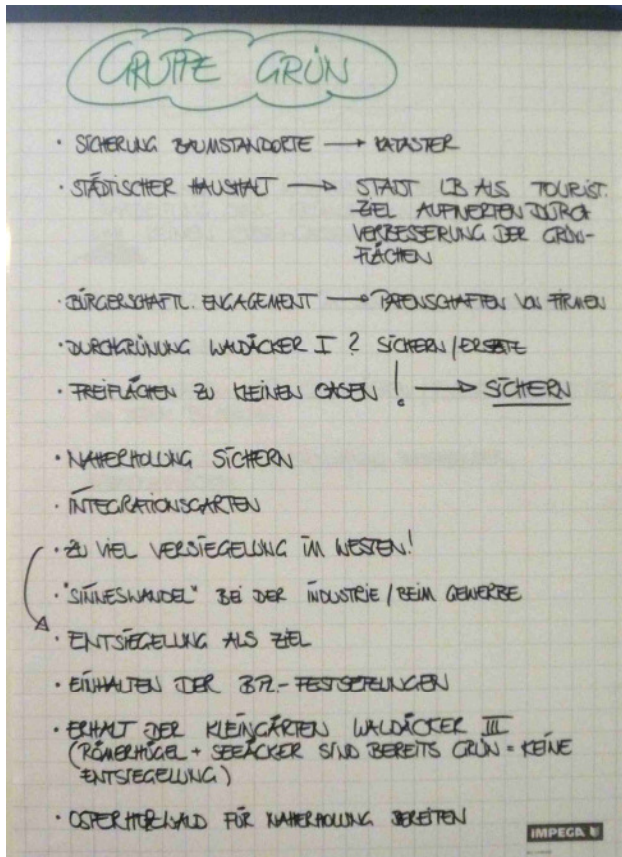 GRUPPE GRÜN
· SICHERUNG BAUMSTANDORTE → KATASTER
· STÄDTISCHER HAUSHALT → STADT LB ALS TOURIST.
ZIEL AUFWERTEN DURCH
VERBESSERUNG DER GRÜN-
FLÄCHEN
· BÜRGERSCHAFTL. ENGAGEMENT → PATENSCHAFTEN VON FIRMEN
· DURCHGRÜNUNG WALDÄCKER I ? SICHERN / ERSATZ
· FREIFLÄCHEN ZU KLEINEN OASEN ! → SICHERN
· NAHERHOLUNG SICHERN
· INTEGRATIONSGARTEN
· ZU VIEL VERSIEGELUNG IM WESTEN!
· "SINNESWANDEL" BEI DER INDUSTRIE / BEIM GEWERBE
· ENTSIEGELUNG ALS ZIEL
· EINHALTEN DER BPL.-FESTSETZUNGEN
· ERHALT DER KLEINGÄRTEN WALDÄCKER III
(RÖMERHÜGEL + SEEÄCKER SIND BEREITS GRÜN = KEINE
ENTSIEGELUNG)
· OSTERHOLZWALD FÜR NAHERHOLUNG BEREITEN
IMPEGA